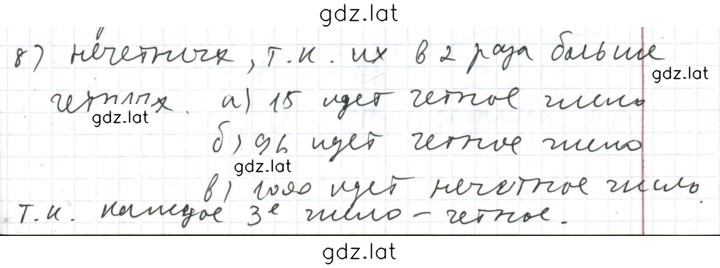 gdz.lat
8) нечетных, т.к. их в 2 раза больше
gdz.lat
четных. а) 15 идет четное число
gdz.lat
б) 96 идет четное число
gdz.lat
в) 1000 идет нечетное число,
т.к. каждое 3е число – четное.
gdz.lat